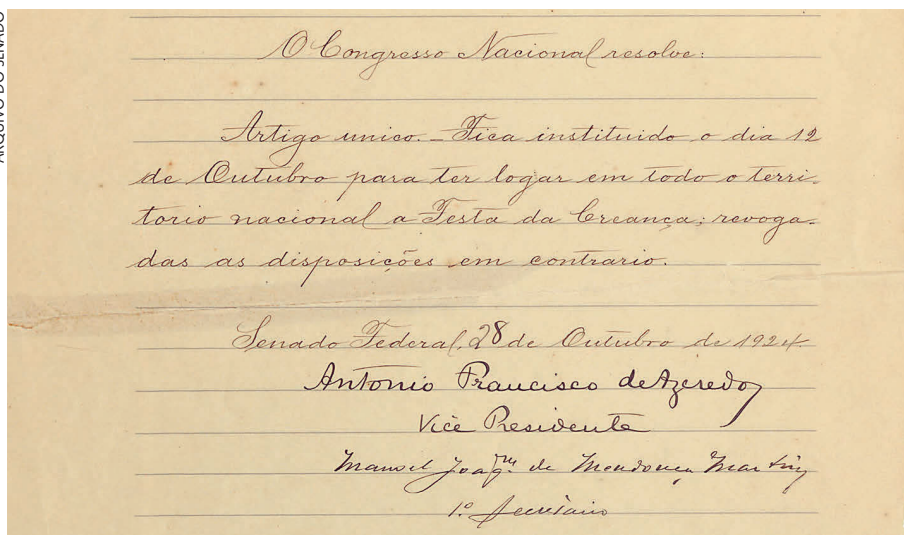 ARQUIVO DO SENADO
O Congresso Nacional resolve:
Artigo unico. – Fica instituido o dia 12
de Outubro para ter logar em todo o terri-
torio nacional a Festa da Creança; revoga-
das as disposições em contrario.
Senado Federal, 28 de Outubro de 1924.
Antonio Francisco de Azeredo
Vice Presidente
Manoel Joaqm. de Mendonça Martins
1º Secretario